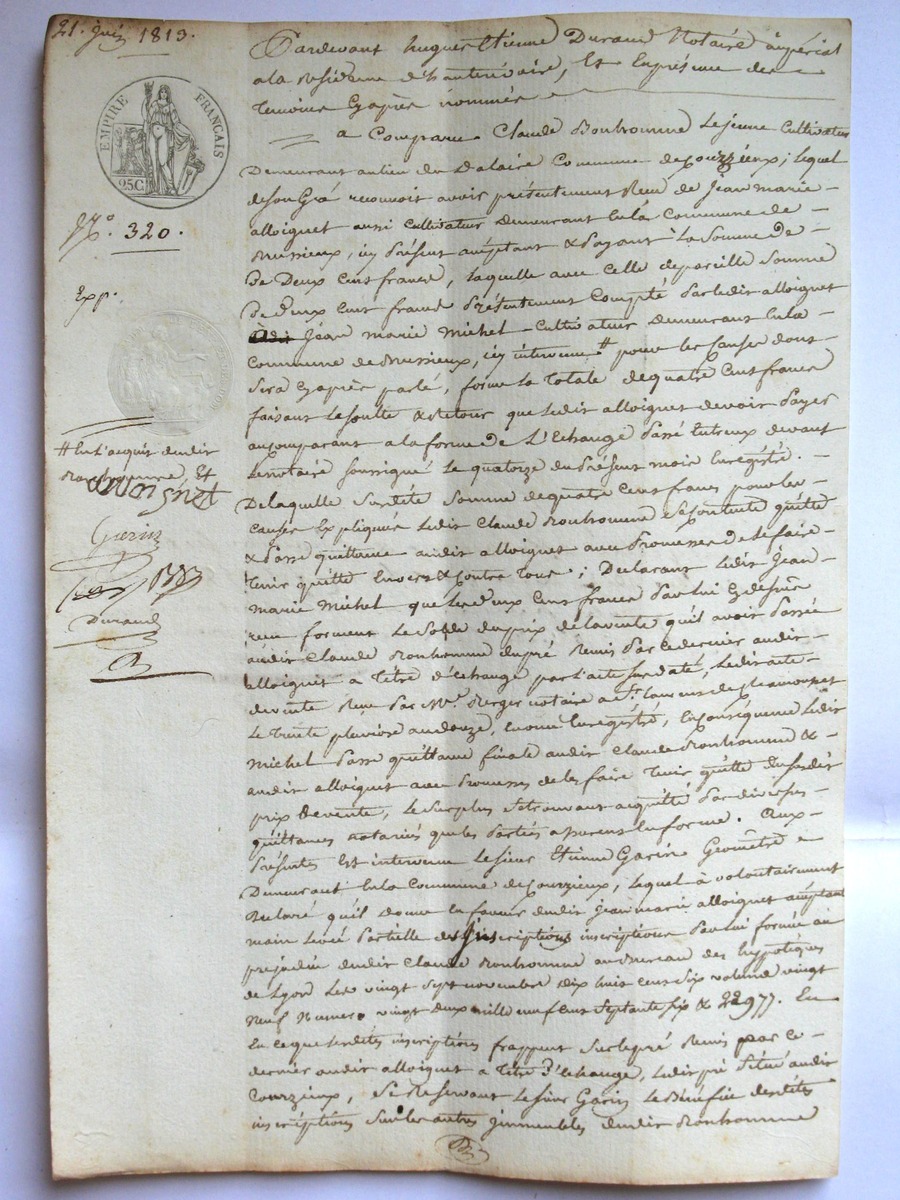 21. Juin 1813.
EMPIRE FRANÇAIS
25C
N.° 320.
Exp.
# En l'acquit dudit
Bonhomme Et
alloignet
Garin
Durand
Pardevant hugues Etienne Durand Notaire impérial
a la Residence d'hauterivoire, Et En présence des
temoins Cyaprès nommés
a Comparu Claude Bonhomme Le jeune Cultivateur
Demeurant au lieu du Commune de Courzieux; lequel
de Son Gré reconnoit avoir présentement Reçu de Jean marie
alloignet aussi Cultivateur Demeurant En la Commune de
Brussieux, icy Présent acceptant & Payant La Somme de
De Deux Cent francs, Laquelle avec Celle de pareille Somme
De Deux Cent francs Présentement Compté Par ledit alloignet
Jean marie Michel Cultivateur Demeurant En la
Commune de Brussieux, icy intervenu # pour les Causes dont
Sera Cyaprès parlé, forme la totale de quatre Cent francs
faisant La Soulte & Retour que Ledit alloignet devoit Payer
au Comparant a la forme de L'Echange Passé Entreux devant
Le notaire Soussigné Le quatorze du Présent mois Enregistré.
De laquelle Susdite Somme de quatre Cent francs pour les
Causes Expliquées Ledit Claude Bonhomme Se Contente quitte
& Passe quittance audit alloignet avec Promesse de Le faire
tenir quitte Envers & Contre tous; Declarant Ledit Jean
marie Michel que les deux Cent francs Par lui Cydessus
reçu forment Le Solde du prix de la vente qu'il avoit Passée
audit Claude Bonhomme du pré Remis Par Ce dernier audit
alloignet a titre d'échange par l'acte Sus daté, Ledit acte
de vente Reçu Par M.e Berger notaire a S.t Laurent de Chamousset
Le trente pluviose an douze, En Enregistré, En Conséquence Ledit
Michel Passe quittance finale audit Claude Bonhomme &
audit alloignet avec Promesses de les faire tenir quitte du Susdit
prix de vente, Le Surplus Se trouvant acquitté Par diverses
quittances notariées que les Parties assurent En forme. Aux
Présentes Est intervenu Le Sieur Etienne Garin Géomètre
Demeurant En la Commune de Courzieux, Lequel à volontairement
Déclaré qu'il donne En faveur dudit Jean marie alloignet acceptant
main levée Partielle des inscriptions Par lui formée au
préjudice dudit Claude Bonhomme au Bureau des hypotèques
de Lyon Le vingt Sept novembre dix huit Cent Six volume vingt
Neuf Numero vingt deux mille neuf Cent Septante Six & 22977. En
En Ce que lesdites inscriptions frappent Sur le pré Remis par Ce
dernier audit alloignet a titre d'échange, Ledit pré Situé audit
Courzieux, Se Reservant Le Sieur Garin Le Bénéfice desdites
inscriptions Sur les autres immeubles dudit Bonhomme